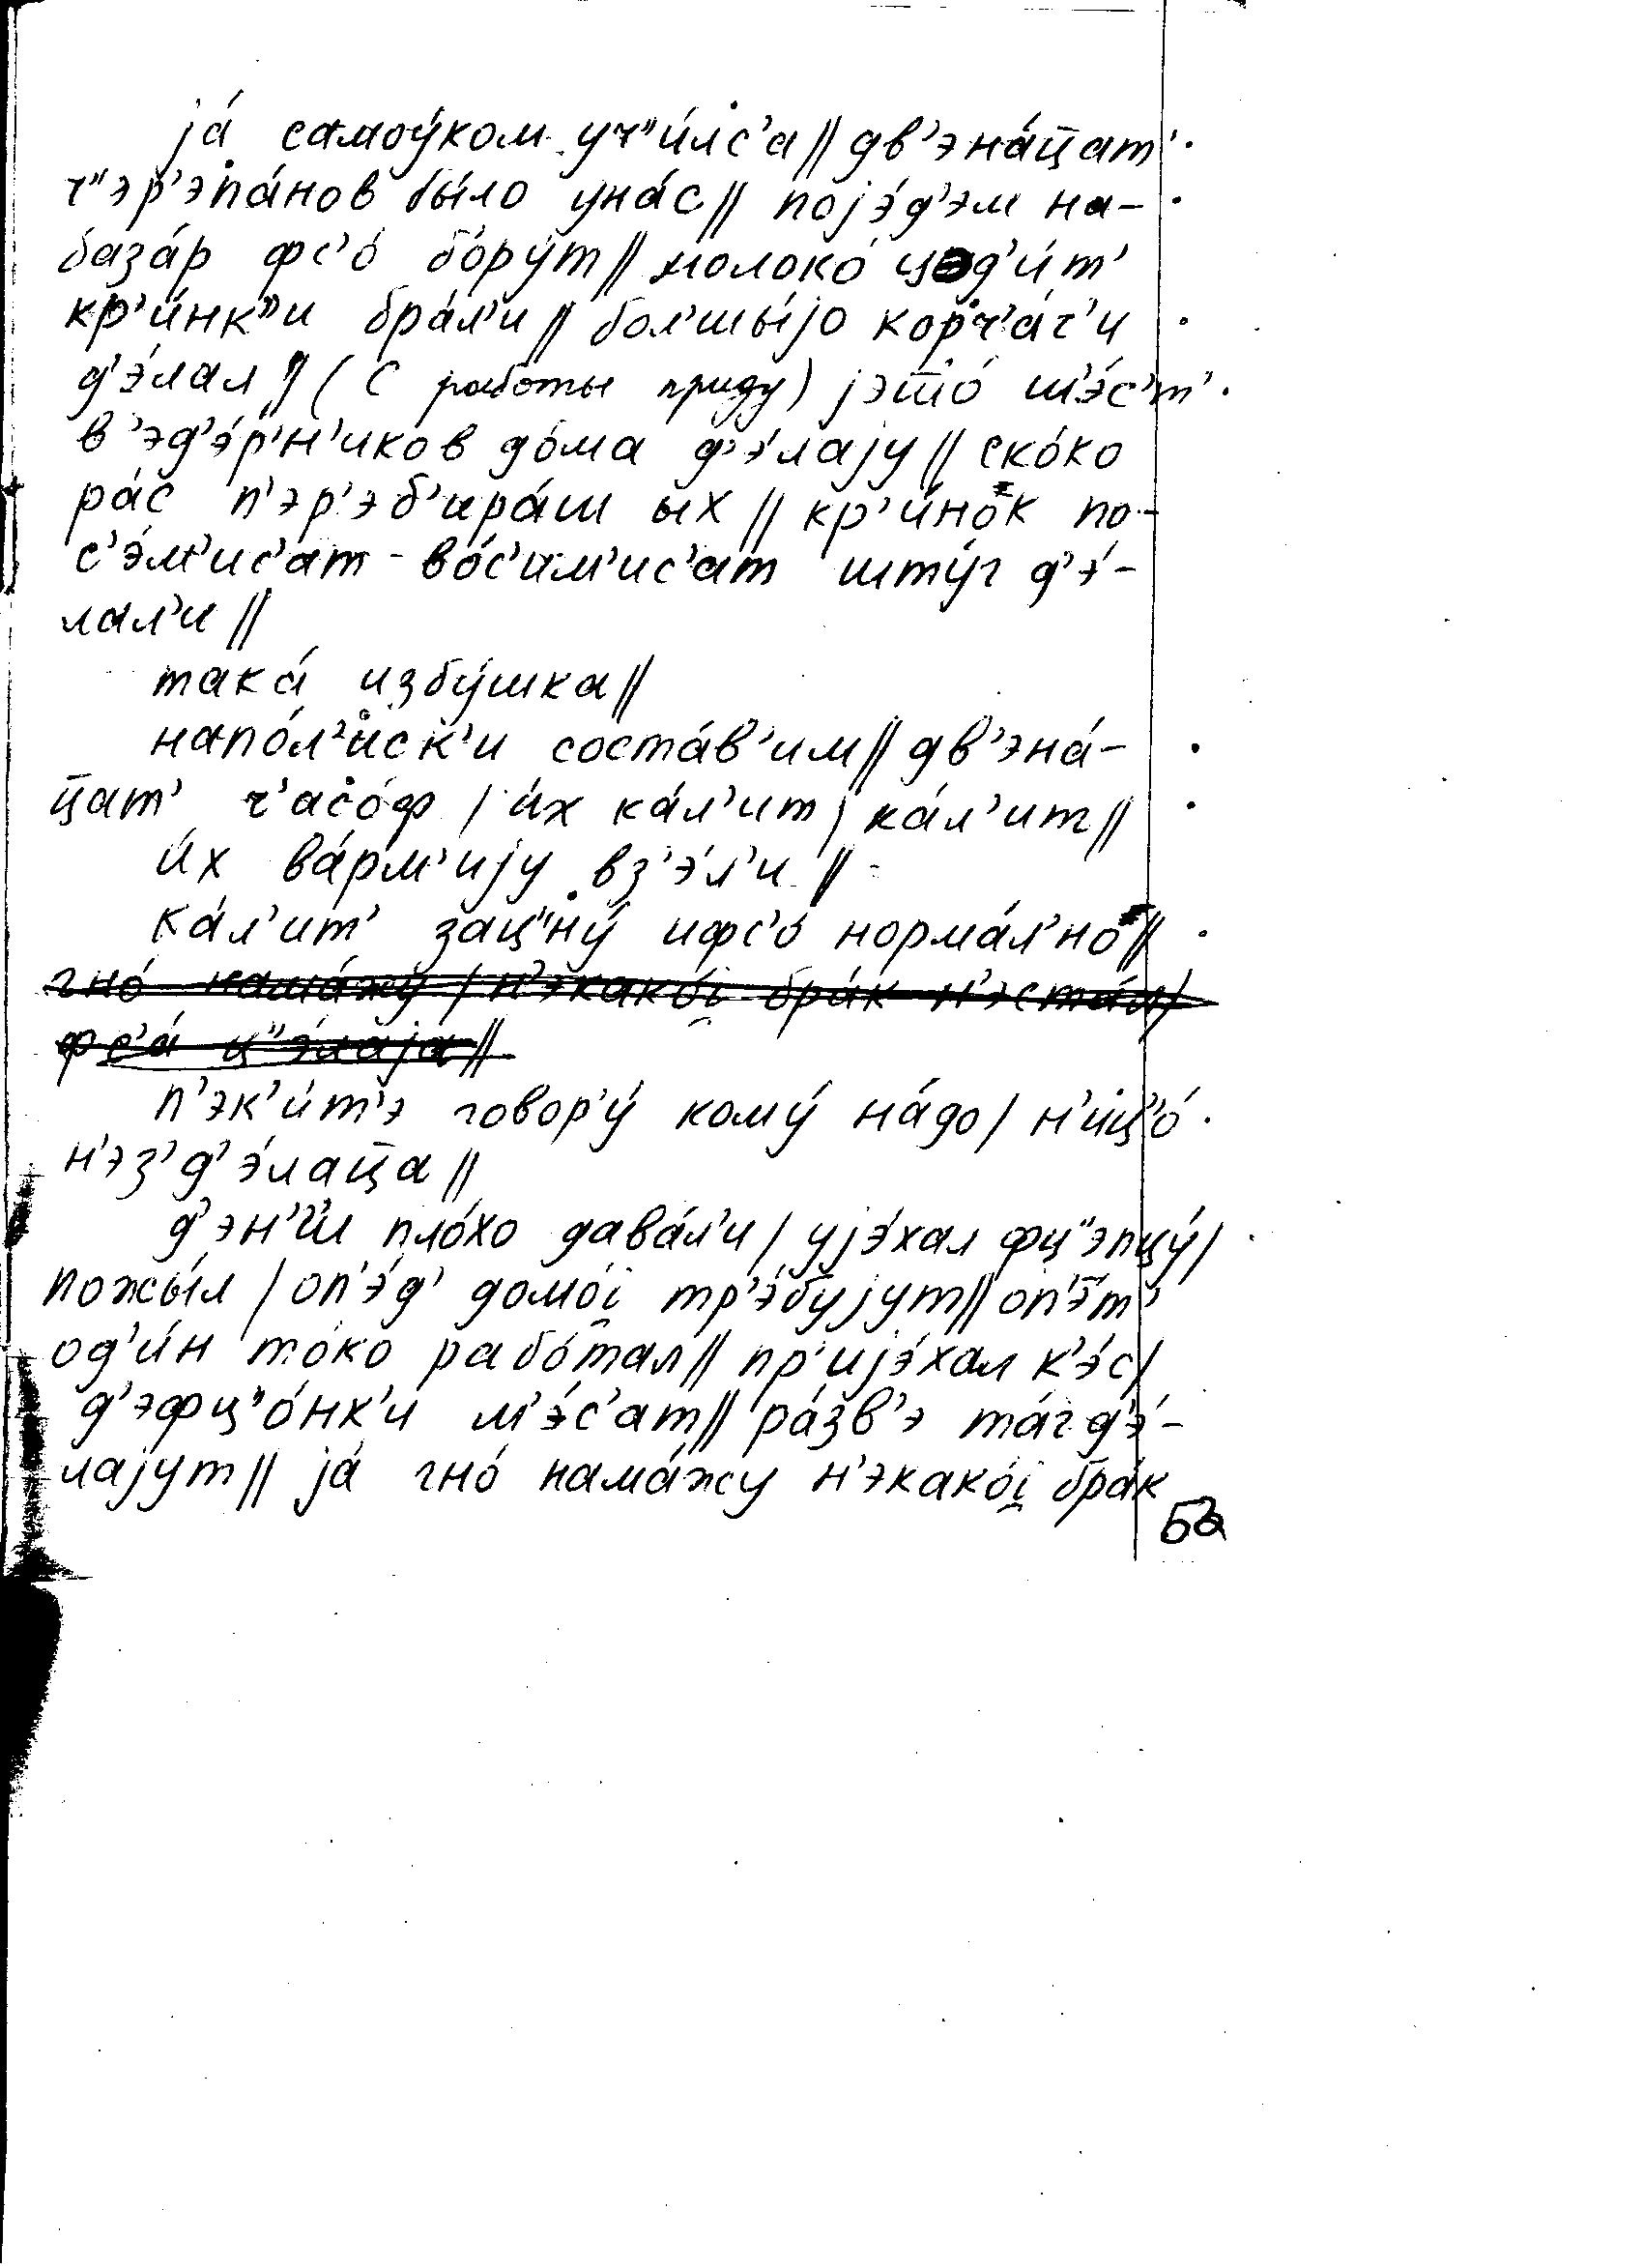 ја́ самоу́ком уч"и́лс'а // дв'эна́ц̄ат'
ч"эр'эпа́нов бы́ло уна́с // појэ́д'эм на-
база́р фс'о́ бору́т // молоко́ цэд'и́т'
кр'и́нк"и бра́л'и // бол'шы́јо корч'а́г'и
д'э́лал // (С работы приду) јэт̄о́ ш'э́с'т'
в'эд'э́р'н'иков до́ма д'э́лају // ско́ко
ра́с п'эр'эб'ира́ш ых // кр'и́нок по-
с'э́м'ис'ат - во́с'им'ис'ат шту́г д'э́-
лал'и //
така́ избу́шка //
напо́л'иск'и соста́в'им // дв'эна́-
ц̄ат' ч'асо́ф / и́х ка́л'ит / ка́л'ит //
и́х ва́рм'ију вз'э́л'и //
ка́л'ит' зац"ну́ ифс'о́ норма́л'но //
гно́ нама́жу / н'экако́і̯ бра́к н'эста́л /
фс'а́ ц"э́лаја //
п'эк'и́т'э говор'у́ кому́ на́до / н'иц"о́
н'эз'д'э́лац̄а //
д'эн'г'и пло́хо дава́л'и / ујэ́хал фц"эпцу́ /
пожы́л / оп'э́д' домо́і̯ тр'э́бујут // оп'э́т'
од'и́н то́ко рабо́тал // пр'ијэ́хал к'э́с /
д'эфц"о́нк'и м'э́с'ат // ра́зв'э та́г д'э́-
лајут // ја́ гно́ нама́жу н'экако́і̯ бра́к
52